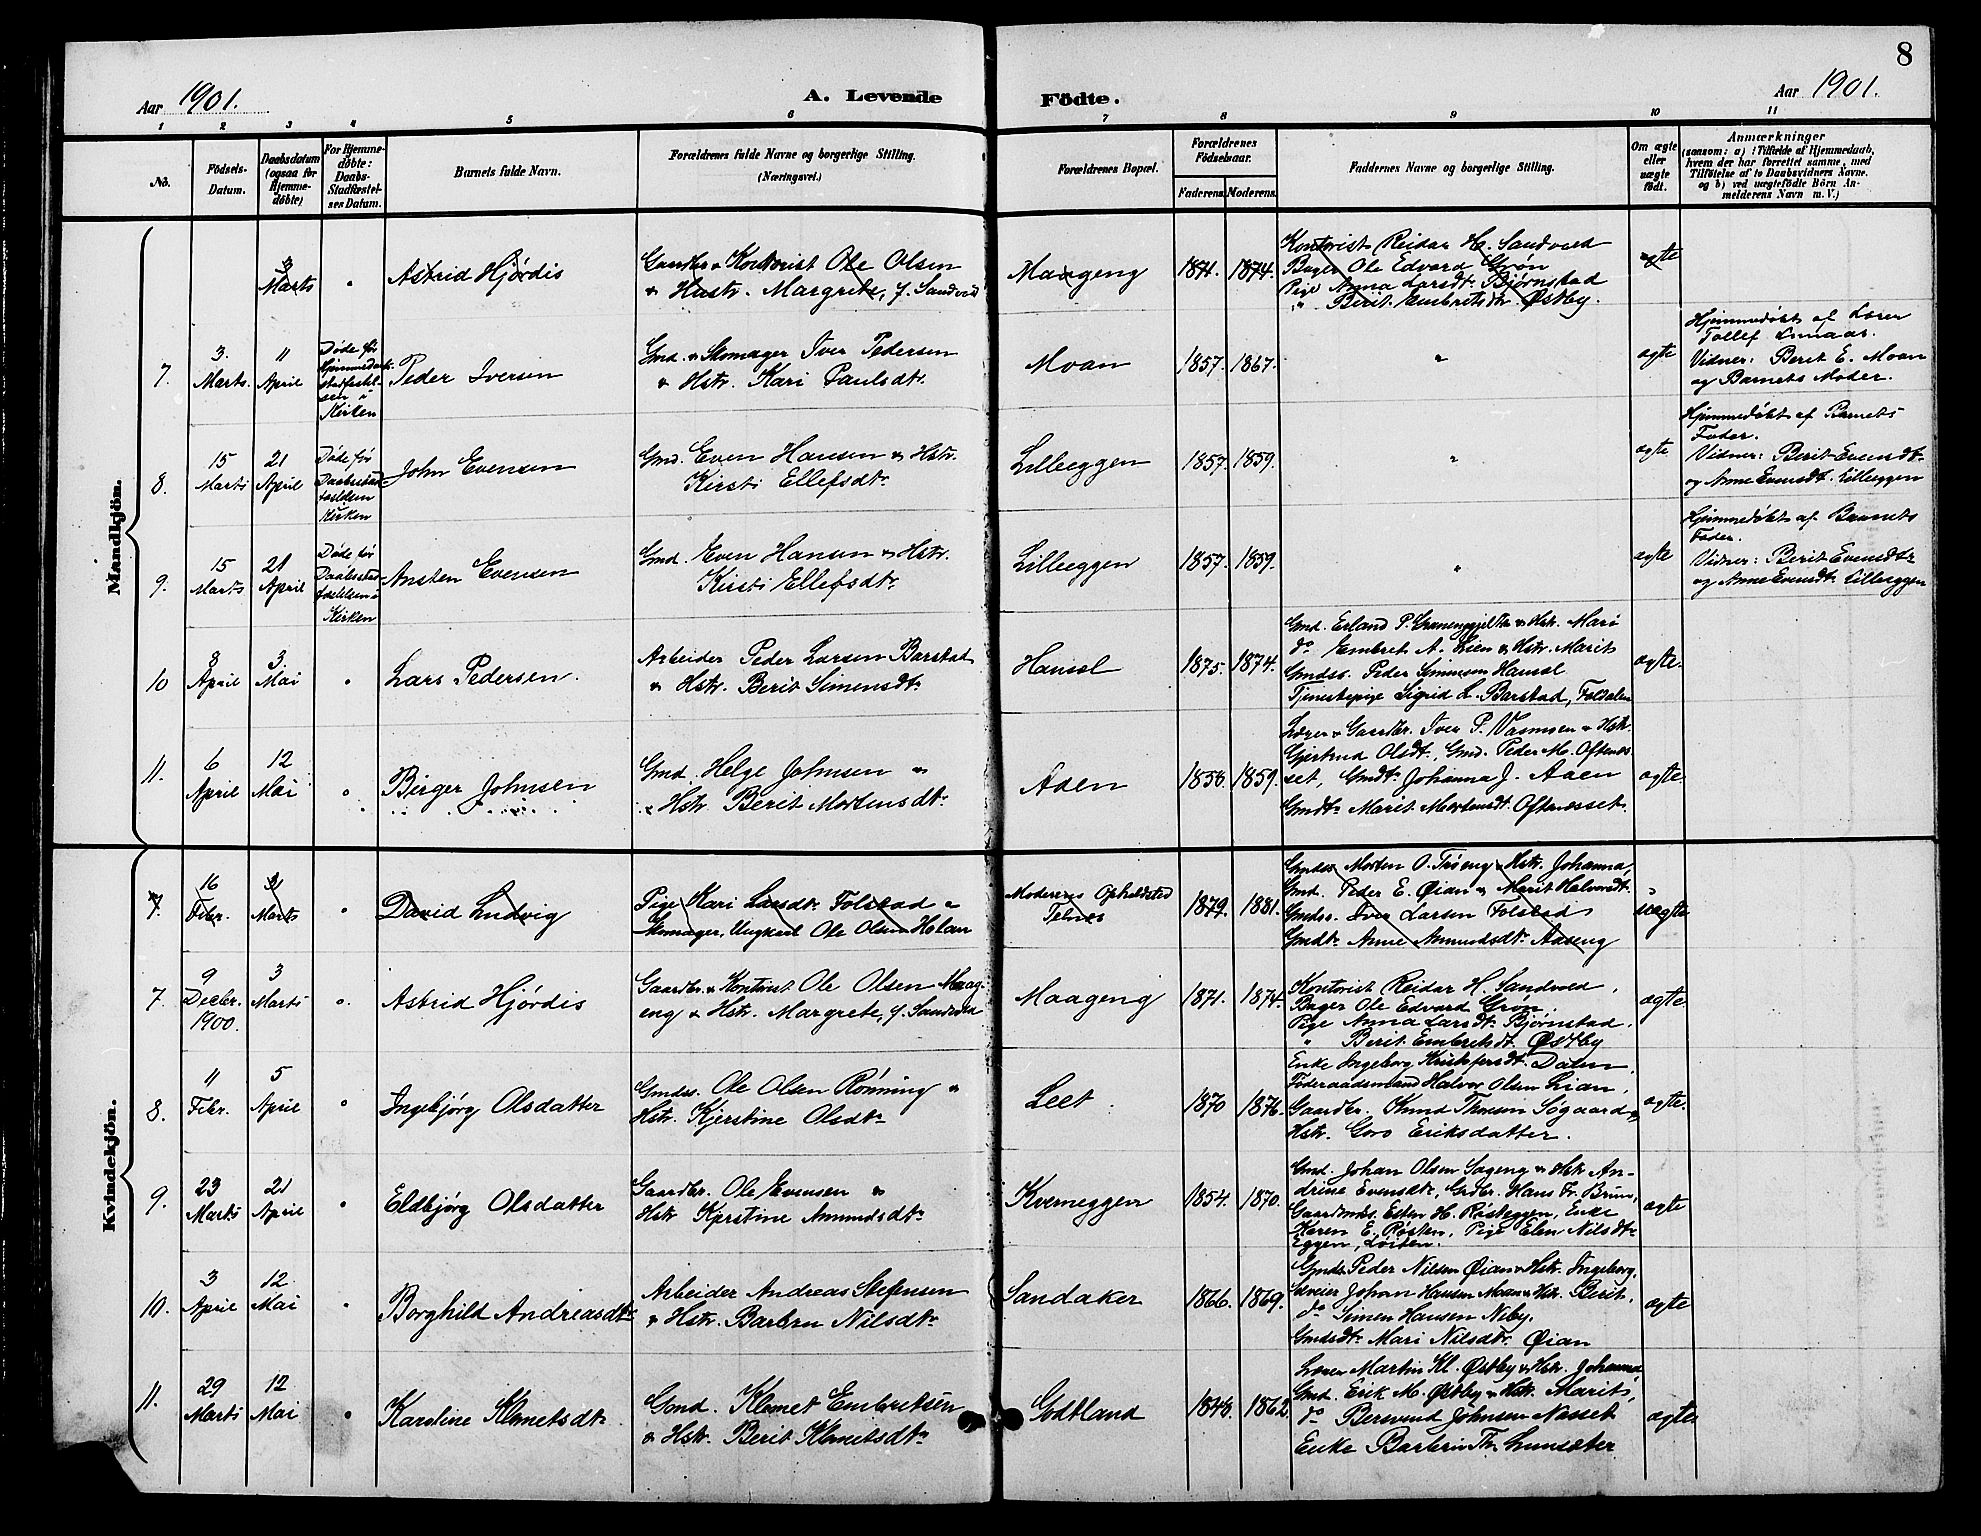 8
Aar 1901.
A. Levende Födte.
Aar 1901.
1 2 3 4 5 6 7 8 9 10 11
No.
Födsels-
Datum.
Daabsdatum
(ogsaa for
Hjemme-
døbte)
For Hjemme-
døbte:
Daabs-
Stadfæstel-
ses Datum.
Barnets fulde Navn.
Forældrenes fulde Navne og borgerlige Stilling.
(Næringsvei.)
Forældrenes Bopæl.
Forældrenes
Födselsaar.
Faderens. Moderens.
Faddernes Navne og borgerlige Stilling.
Om ægte
eller
uægte
födt.
Anmærkninger
(saasom: a) i Tilfælde af Hjemmedaab,
hvem der har forrettet samme, med
Tilføielse af to Daabsvidners Navne.
og b) ved uægtefødte Börn An-
melderens Navn m. V.)
Mandkjön.
3
Marts
"
Astrid Hjørdis
Gaardbr. & Kontorist Ole Olsen
& Hustr. Margrete, f. Sandvold
Maageng
1871. 1874.
Kontorist Reidar H. Sandvold
Bager Ole Edvard Grøn
Pige Anna Larsdtr. Bjørnstad
" Berit Embretsdtr. Østby.
ægte
7.
3.
Marts
11
April
Døde før
Hjemmedaabs-
stadfæstel-
sen i
Kirken
Peder Iversen
Gmd. & Skomager Iver Pedersen
& Hstr. Kari Paulsdtr.
Moan
1857. 1867.
"
ægte
Hjemmedøbt af Lærer
Tollef
Vidner: Berit E. Moan
og Barnets Moder.
8.
15
Marts
21
April
Døde før
Daabsstad-
fæstelsen
Kirken
John Evensen
Gmd. Even Hansen & Hstr.
Kirsti Ellefsdtr.
Lilleeggen
1857. 1859.
"
ægte
Hjemmedøbt af Barnets
Fader.
Vidner: Berit Evensdtr.
og Anne Evensdtr. Lilleeggen
9.
15
Marts
21
April
Døde før
Daabsstad-
fæstelsen i
Kirken
Ansten Evensen
Gmd. Even Hansen & Hstr.
Kirsti Ellefsdtr.
Lilleeggen
1857. 1859.
"
ægte
Hjemmedøbt af Barnets
Fader.
Vidner: Berit Evensdtr.
og Anne Evensdtr. Lilleeggen
10
8
April
3.
Mai
"
Lars Pedersen.
Arbeider Peder Larsen Barstad
& Hstr. Berit Simensdtr.
Hausol
1875. 1874.
Gmd. Erland P. & Hstr. Mari
do Embret A. Lien & Hstr. Marit
Gmdss. Peder Simensen Hausol
Tjenestepige Sigrid L. Barstad, Foldalen
ægte.
11.
6
April
12
Mai
"
Birger Johnsen
Gmd. Helge Johnsen &
& Hstr. Berit Mortensdtr.
Aaen
1858. 1859.
Lærer & Gaardbr. Iver P. & Hstr.
Gjertrud Olsdtr., Gmd. Peder M. Oftenæs-
set, Gmdtr. Johanna J. Aaen
Gmdtr. Marit Mortensdtr. Oftenæsset.
ægte
Kvindekjön.
7.
16
Febr.
31
Marts
"
David Ludvig
Pige Kari Larsdtr. Folstad &
Skomager, Ungkarl Ole Olsen Helan
Moderens Opholdssted
Telnes
1879. 1881.
Gmdss. Morten O. Trøeng & Hstr. Johanna,
Gmd. Peder E. Øian & Marit Halvorsdtr.
Gmdss. Iver Larsen Folstad
Gmdtr. Anne Amundsdtr. Aaseng
uægte
7.
9
Decbr.
1900.
3
Marts
"
Astrid Hjørdis
Gaardbr. & Kontorist Ole Olsen Maag-
eng & Hstr. Margrete, f. Sandvold
Maageng
1871. 1874.
Kontorist Reidar H. Sandvold,
Bager Ole Edvard Grøn.
Pige Anna Larsdtr. Bjørnstad.
" Berit Embretsdtr. Østby
ægte
8.
11
Febr.
5
April
"
Ingebjørg Olsdatter
Gmdss. Ole Olsen Rønning &
Hstr. Kjerstine Olsdtr.
Leet.
1870 1876.
Enke Ingeborg Kristofersdtr. Dalen,
Føderaadsmand Halvor Olsen Lian,
Gaardbr. Knud Thoresen Søgaard &
Hstr. Goro Eriksdatter.
ægte.
9.
23
Marts
21
April
"
Eldbjørg Olsdatter
Gaardbr. Ole Evensen &
Hstr. Kjerstine Amundsdtr.
Kverneggen
1854. 1870.
Gmd. Johan Olsen Sageng & Hstr. An-
drine Evensdtr., Grdbr. Hans Fr. Brun,
Gaardmds. Esten H. Røsteggen, Enke
Karen E. Røsten, Pige Elen Nilsdtr.
Eggen, Løiten.
ægte
10.
3
April
12
Mai
"
Borghild Andreasdtr.
Arbeider Andreas Stefensen
& Hstr. Barbru Nilsdtr.
Sandaker
1866. 1869.
Gmds. Peder Nilsen Øian & Hstr. Ingeborg,
Selveier Johan Hansen Moan & Hstr. Berit,
do Simen Hansen Neby.
Gmdsdtr. Mari Nilsdtr. Øian
ægte
11.
29
Marts
12
Mai
"
Karoline Klemetsdtr.
Gmd. Klemet Embretsen
& Hstr. Berit Klemetsdtr.
Godtland
1848. 1862.
Lærer Martin Kl. Østby & Hstr. Johanna
Gmd. Erik M. Østby & Hstr. Marit,
do Bersvend Johnsen Næsset
Enke Barbru Th. Lunsæter
ægte